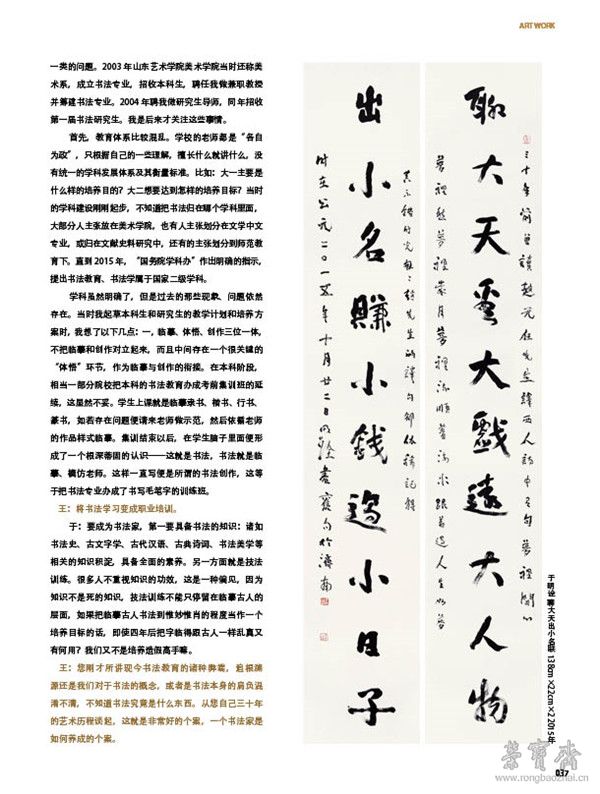 ART WORK
一类的问题。2003年山东艺术学院美术学院当时还称美
术系，成立书法专业，招收本科生，聘任我做兼职教授
并筹建书法专业。2004年聘我做研究生导师，同年招收
第一届书法研究生。我是后来才关注这些事情。
首先，教育体系比较混乱。学校的老师都是“各自
为政”，只根据自己的一些理解，擅长什么就讲什么，没
有统一的学科发展体系及其衡量标准。比如：大一主要是
什么样的培养目的？大二想要达到怎样的培养目标？当时
的学科建设刚刚起步，不知道把书法归在哪个学科里面，
大部分人主张放在美术学院，也有人主张划分在文学中文
专业，或归在文献史料研究中，还有的主张划分到师范教
育下。直到2015年，“国务院学科办”作出明确的指示，
提出书法教育、书法学属于国家二级学科。
学科虽然明确了，但是过去的那些现象、问题依然
存在。当时我起草本科生和研究生的教学计划和培养方
案时，我想了以下几点：一，临摹、体悟、创作三位一体，
不把临摹和创作对立起来，而且中间存在一个很关键的
“体悟”环节，作为临摹与创作的衔接。在本科阶段，
相当一部分院校把本科的书法教育办成考前集训班的延
续，这显然不妥。学生上课就是临摹隶书、楷书、行书、
篆书，如若存在问题便请来老师做示范，然后依循老师
的作品样式临摹。集训结束以后，在学生脑子里面便形
成了一个根深蒂固的认识——这就是书法，书法就是临
摹、模仿老师。这样一直写便是所谓的书法创作，这等
于把书法专业办成了书写毛笔字的训练班。
王：将书法学习变成职业培训。
于：要成为书法家，第一要具备书法的知识：诸如
书法史、古文字学、古代汉语、古典诗词、书法美学等
相关的知识积淀，具备全面的素养。另一方面就是技法
训练。很多人不重视知识的功效，这是一种偏见，因为
知识不是死的知识，技法训练不能只停留在临摹古人的
层面，如果把临摹古人书法到惟妙惟肖的程度当作一个
培养目标的话，即使四年后把字临得跟古人一样乱真又
有何用？我们又不是培养造假高手嘛。
王：您刚才所讲现今书法教育的诸种弊端，追根溯
源还是我们对于书法的概念，或者是书法本身的肩负混
淆不清，不知道书法究竟是什么东西。从您自己三十年
的艺术历程谈起，这就是非常好的个案，一个书法家是
如何养成的个案。
聊大天看大戏遠大人物
出小名賺小錢過小日子
于明诠 聊大天出小名联 138cm×22cm×2 2015年
荣寶齋
www.rongbaozhai.cn
037